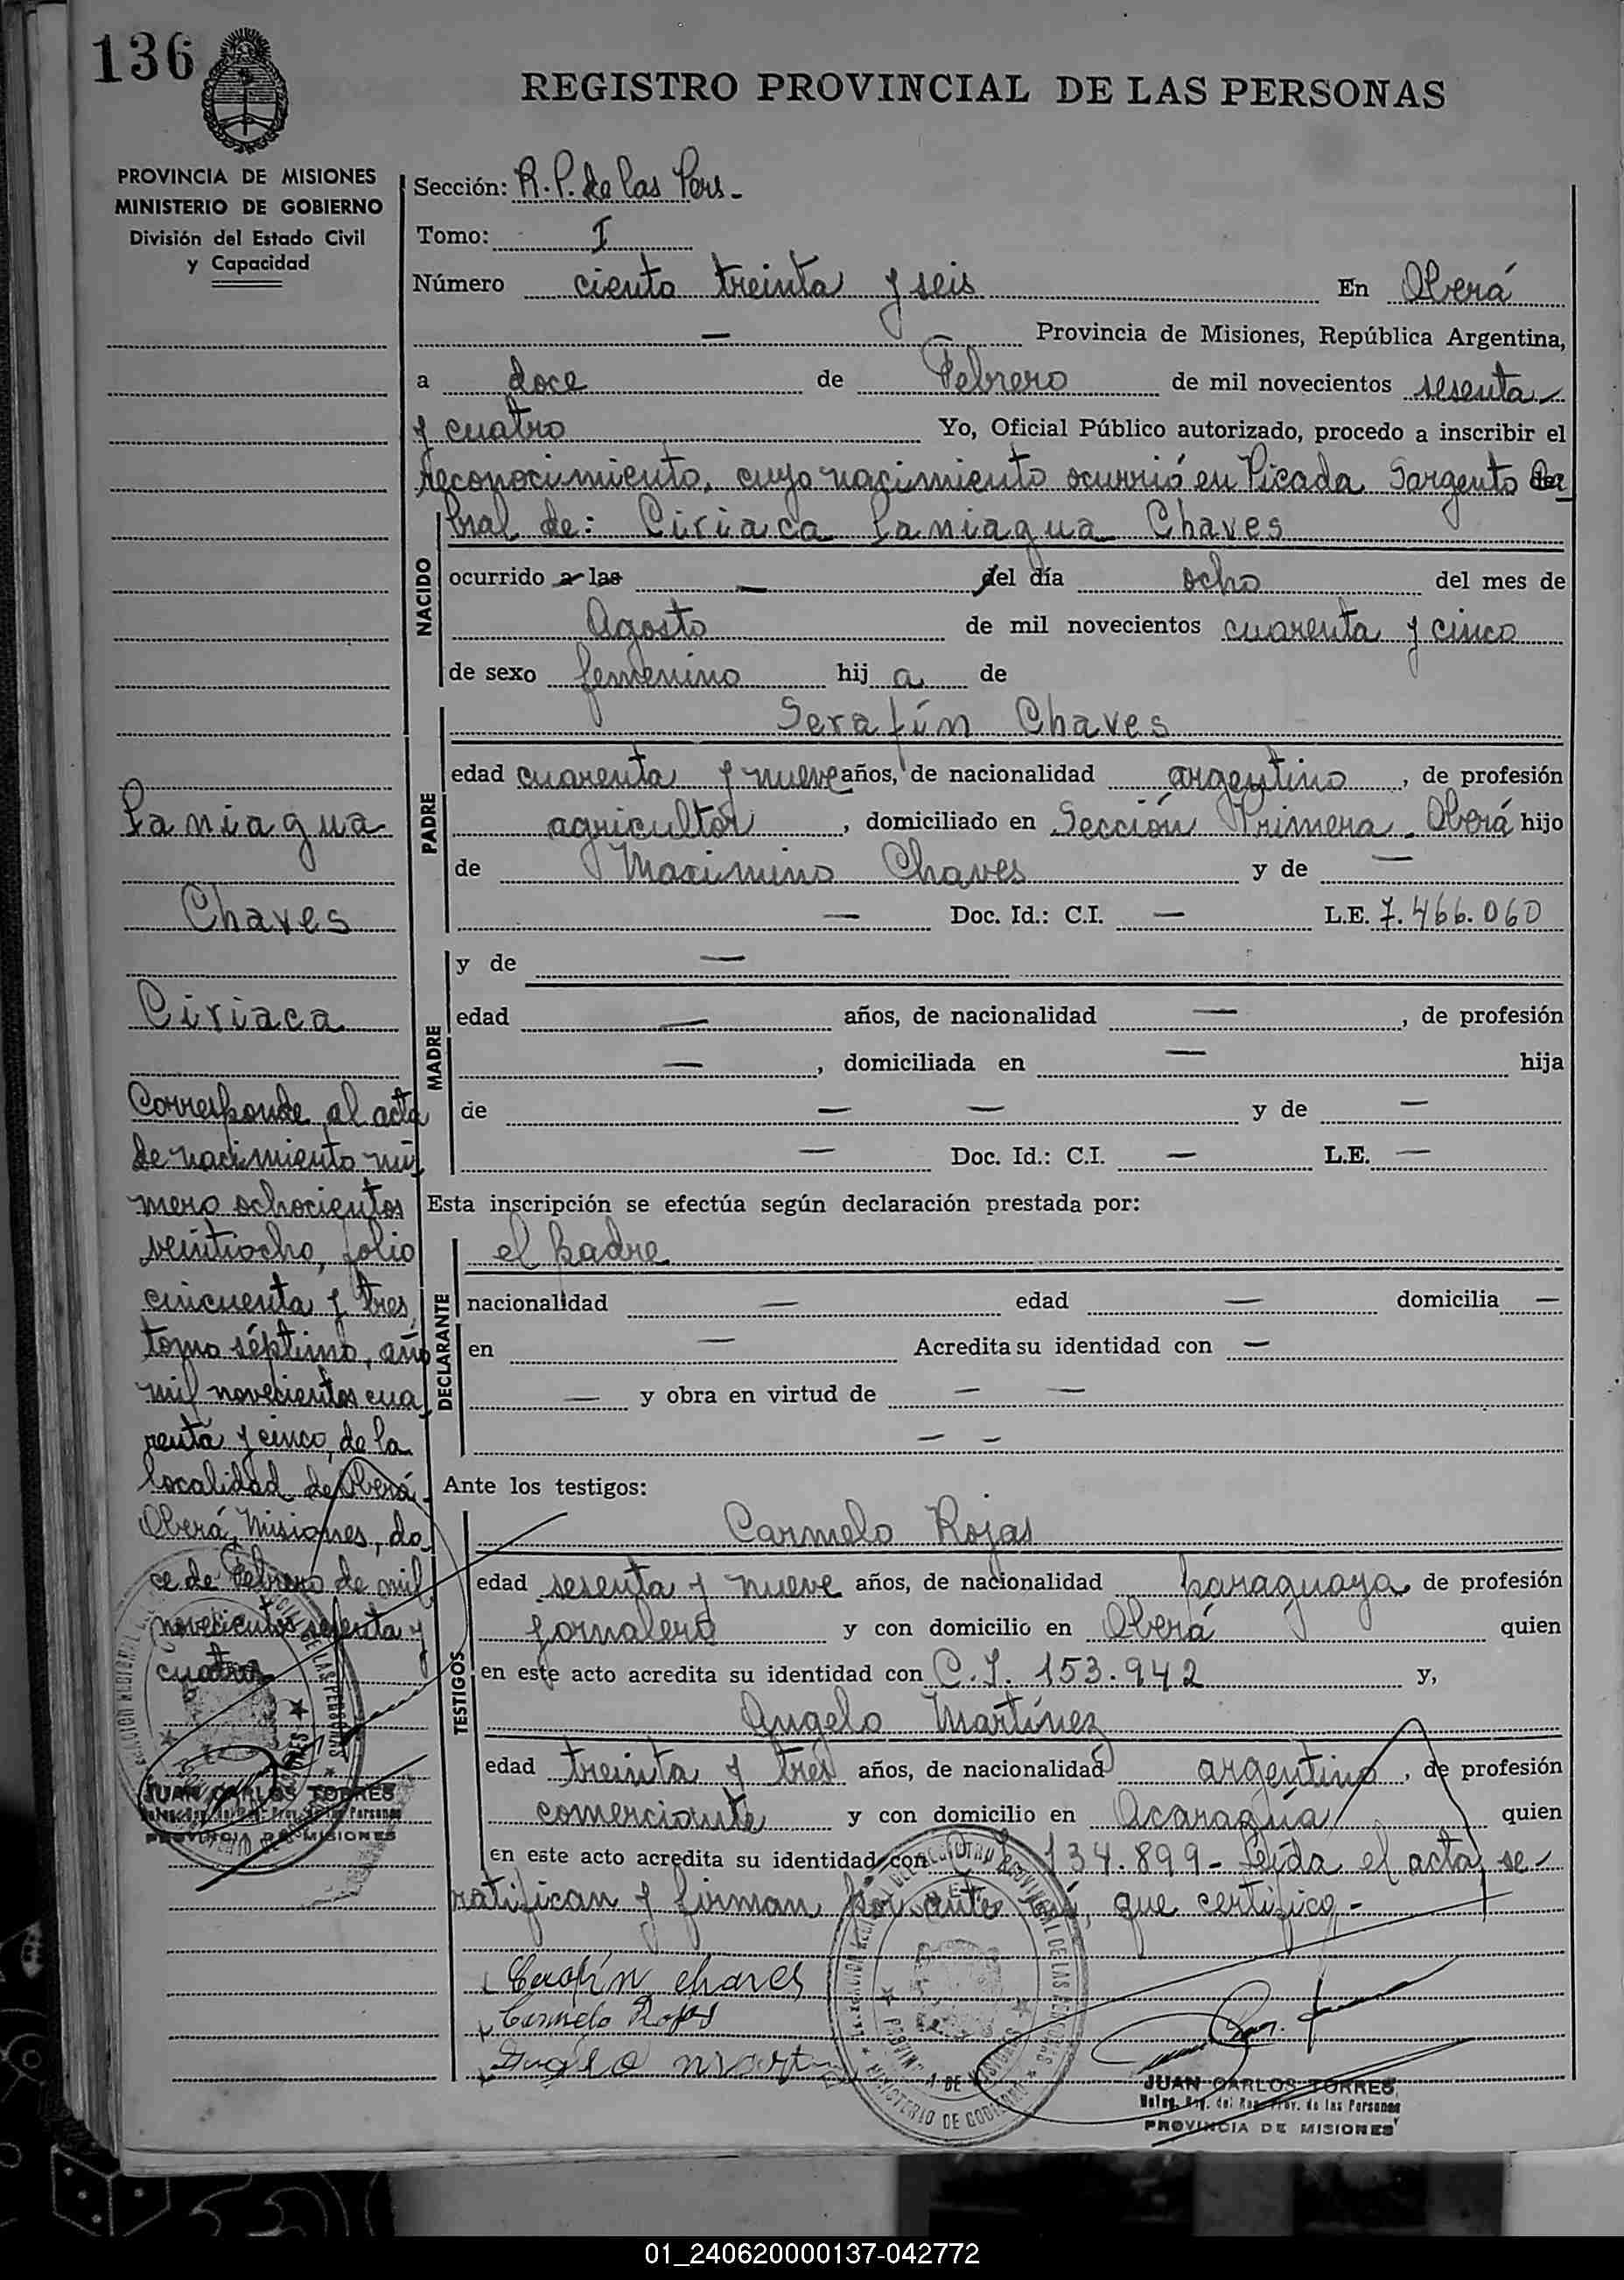 136
REGISTRO PROVINCIAL DE LAS PERSONAS
PROVINCIA DE MISIONES
MINISTERIO DE GOBIERNO
División del Estado Civil
y Capacidad
Paniagua
Chaves
Ciriaca
Corresponde al acta
de nacimiento nú
mero ochocientos
veintiocho, folio
cincuenta y tres,
tomo séptimo, año
mil novecientos cua
renta y cinco, de la
localidad de Oberá.
Oberá, Misiones, do
ce de Febrero de mil
novecientos sesenta y
cuatro
JUAN CARLOS TORRES
PROVINCIA DE MISIONES
Sección: R. P. de las Pers.-
Tomo: I
Número ciento treinta y seis En Oberá
— Provincia de Misiones, República Argentina,
a doce de Febrero de mil novecientos sesenta
y cuatro Yo, Oficial Público autorizado, procedo a inscribir el
reconocimiento, cuyo nacimiento ocurrió en Picada Sargento Ca
NACIDO
bral de: Ciriaca Paniagua Chaves
ocurrido a las — del día ocho del mes de
Agosto de mil novecientos cuarenta y cinco
de sexo femenino hij a de
PADRE
Serafín Chaves
edad cuarenta y nueve años, de nacionalidad argentino, de profesión
agricultor, domiciliado en Sección Primera - Oberá hijo
de Maximino Chaves y de —
— Doc. Id.: C.I. — L.E. 7.466.060
MADRE
y de —
edad — años, de nacionalidad —, de profesión
—, domiciliada en — hija
de — — y de —
— Doc. Id.: C.I. — L.E. —
Esta inscripción se efectúa según declaración prestada por:
DECLARANTE
el padre
nacionalidad — edad — domicilia —
en — Acredita su identidad con —
— y obra en virtud de — —
— —
Ante los testigos:
TESTIGOS
Carmelo Rojas
edad sesenta y nueve años, de nacionalidad paraguaya, de profesión
jornalero y con domicilio en Oberá quien
en este acto acredita su identidad con C.I. 153.942 y,
Angelo Martínez
edad treinta y tres años, de nacionalidad argentino, de profesión
comerciante y con domicilio en Acaragua quien
en este acto acredita su identidad con 134.899 - Leída el acta, se
ratifican y firman por ante mí, que certifico.-
Serafín Chaves
Carmelo Rojas
Angelo
JUAN CARLOS TORRES
PROVINCIA DE MISIONES
MINISTERIO DE GOBIERNO
01_240620000137-042772